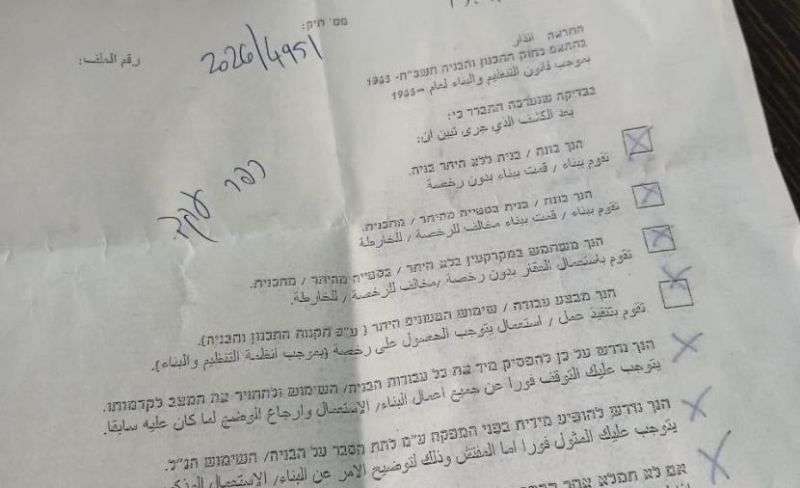 מס' תיק:
رقم الملف:
2026/4951
התראה انذار
בהתאם לחוק התכנון והבניה תשכ"ה- 1965
بموجب قانون التنظيم والبناء لعام –1965
בבדיקה שנערכה התברר כי:
بعد الكشف الذي جرى تبين ان:
כפר עקב
הנך בונה / בנית ללא היתר בניה.
تقوم ببناء / قمت ببناء بدون رخصة
הנך בונה / בנית בסטייה מהיתר / מתכנית.
تقوم ببناء / قمت ببناء مخالف للرخصة / للخارطة
הנך משתמש במקרקעין בלא היתר / בסטייה מהיתר / מתכנית.
تقوم باستعمال العقار بدون رخصة /مخالف للرخصة / للخارطة.
הנך מבצע עבודה / שימוש הטעונים היתר ( ע"פ תקנות התכנון והבניה).
تقوم بتنفيذ عمل / استعمال يتوجب الحصول على رخصة (بموجب انظمة التنظيم والبناء).
הנך נדרש על כן להפסיק מיד את כל עבודות הבניה/ השימוש ולהחזיר את המצב לקדמותו.
يتوجب عليك التوقف فورا عن جميع اعمال البناء/ الاستعمال وارجاع الوضع لما كان عليه سابقا.
הנך נדרש להופיע מידית בפני המפקח ע"מ לתת הסבר על הבניה/ השימוש הנ"ל.
يتوجب عليك المثول فورا امام المفتش وذلك لتوضيح الامر عن البناء/ الاستعمال
אם לא תמלא אחר